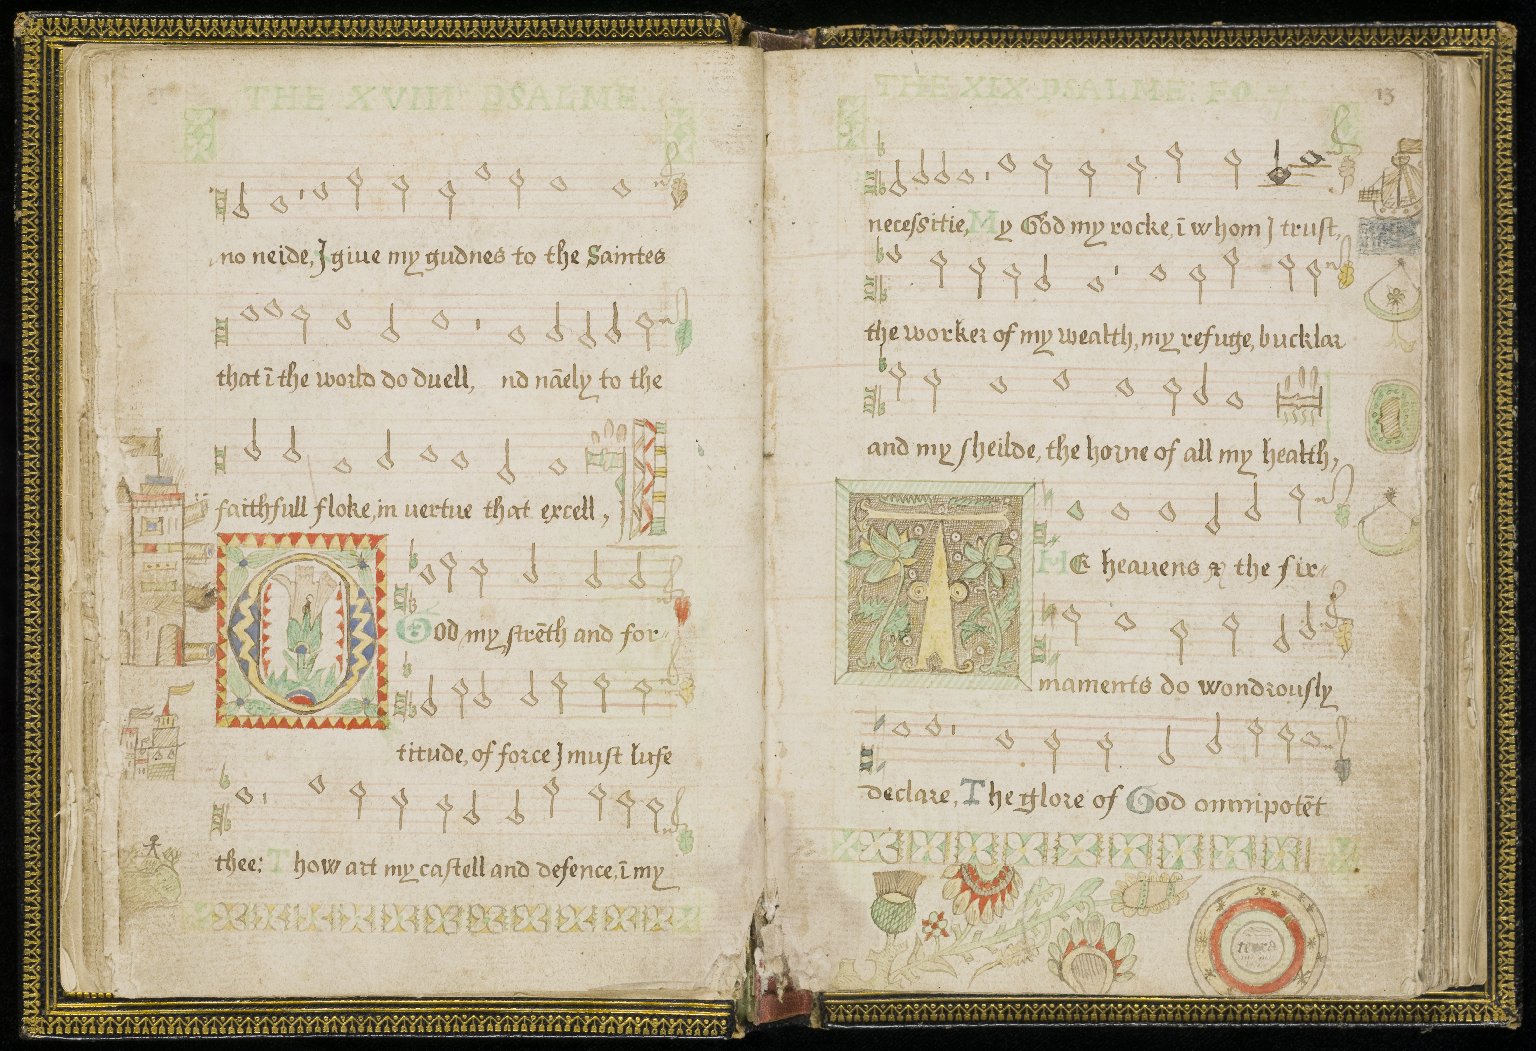 THE XVIII PSALME
no neide, I giue my gudnes to the Saintes
that ī the world do duell, nd nāely to the
faithfull floke, in uertue that excell,
O God, my strēth and for-
titude, of force I must lufe
thee: Thow art my castell and defence, ī my
THE XIX PSALME: FO. 7
13
necessitie, My God my rocke, ī whom I trust,
the worker of my wealth, my refuge, bucklar
and my sheilde, the horne of all my health,
THE heauens & the fir-
maments do wondrously
declare, The glore of God omnipotēt
terra